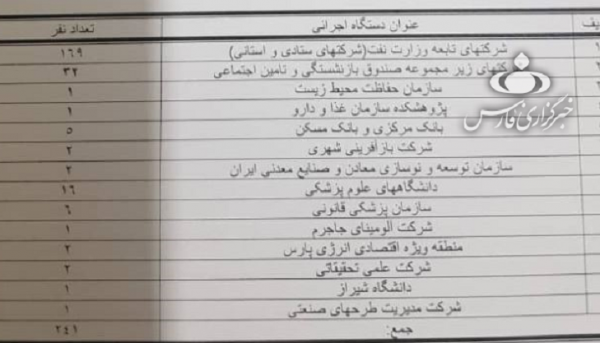 ردیف عنوان دستگاه اجرائی تعداد نفر
شرکتهای تابعه وزارت نفت(شرکتهای ستادی و استانی) ۱۶۹
کتهای زیر مجموعه صندوق بازنشستگی و تامین اجتماعی ۳۲
سازمان حفاظت محیط زیست ۱
پژوهشکده سازمان غذا و دارو ۱
بانک مرکزی و بانک مسکن ۵
شرکت بازآفرینی شهری ۲
سازمان توسعه و نوسازی معادن و صنایع معدنی ایران ۲
دانشگاههای علوم پزشکی ۱۶
سازمان پزشکی قانونی ۶
شرکت آلومینای جاجرم ۱
منطقه ویژه اقتصادی انرژی پارس ۲
شرکت علمی تحقیقاتی ۲
دانشگاه شیراز ۱
شرکت مدیریت طرحهای صنعتی ۱
جمع: ۲۴۱
خبرگزاری فارس